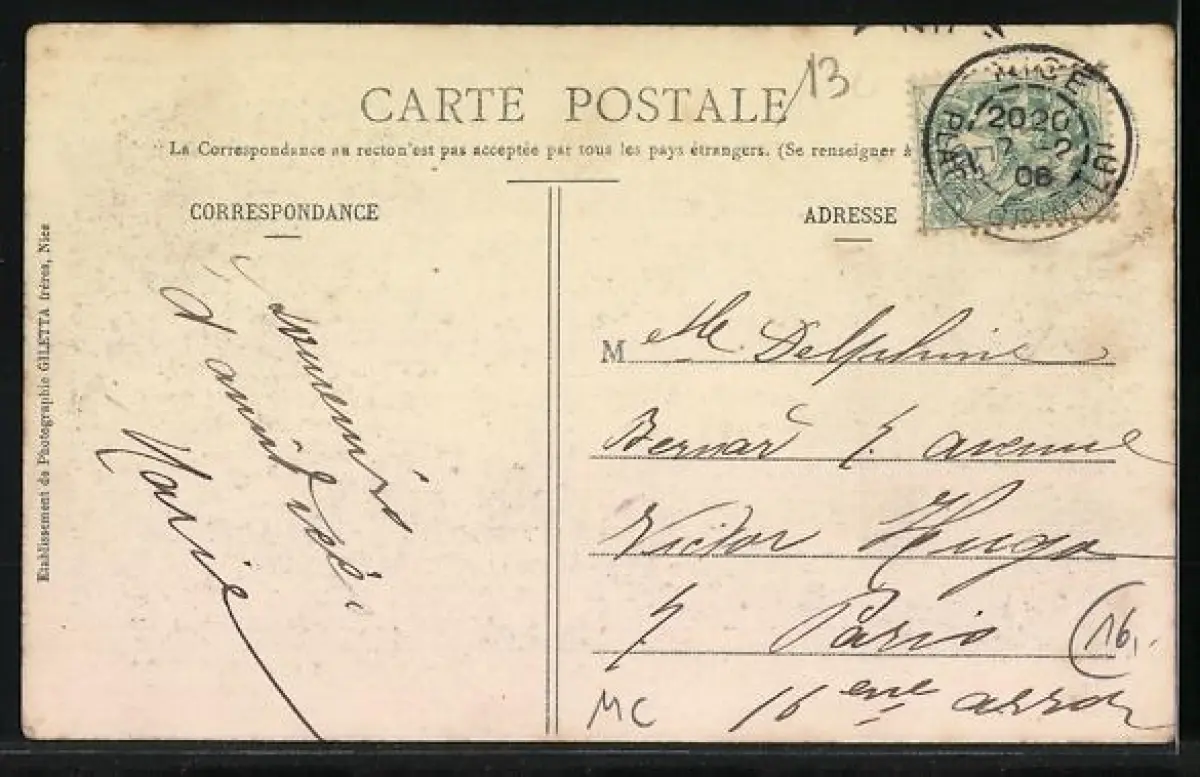 CARTE POSTALE
13
La Correspondance au recto n'est pas acceptée par tous les pays étrangers. (Se renseigner à
NICE
20 20
7 -2
06
PLACE GRIMALDI
CORRESPONDANCE
ADRESSE
Etablissement de Photographie GILETTA frères, Nice
Souvenirs
d'amitiés
Marie
M elle Delphine
Bernard 5 avenue
Victor Hugo
Paris
16.
16 eme arrond
MC